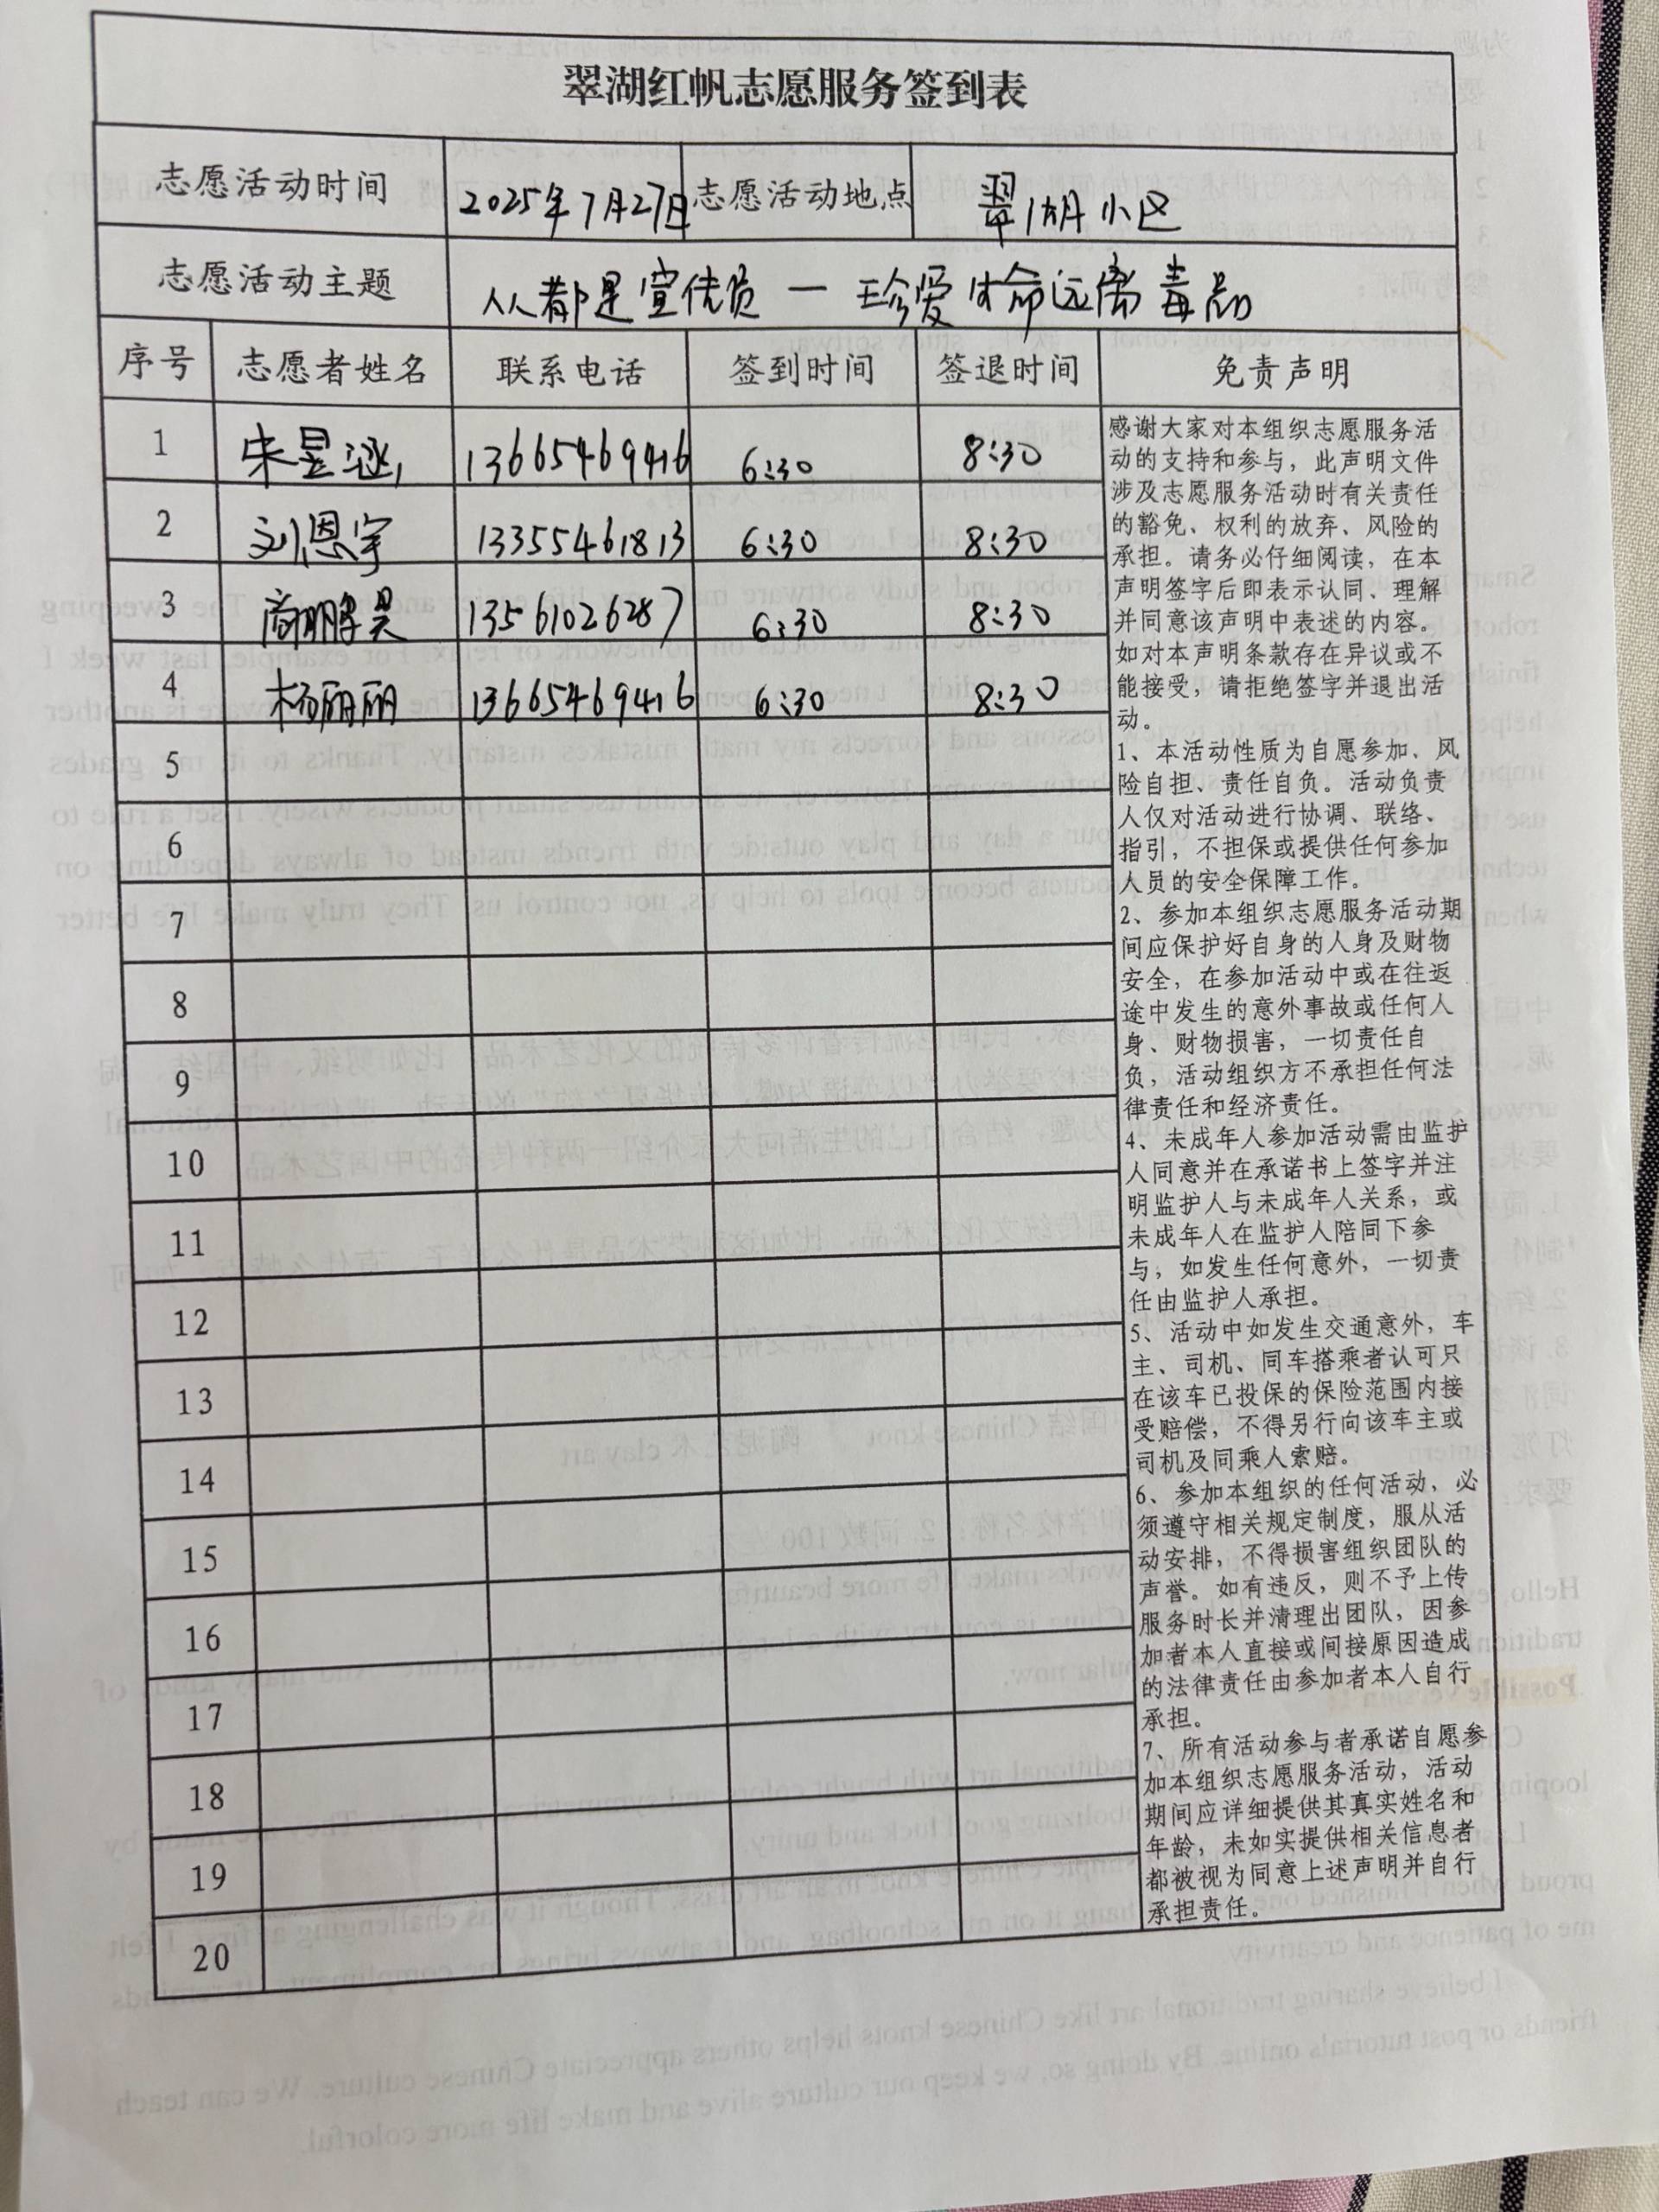 翠湖红帆志愿服务签到表
志愿活动时间 2025年7月27日 志愿活动地点 翠湖小区
志愿活动主题 人人都是宣传员 — 珍爱生命远离毒品
序号 志愿者姓名 联系电话 签到时间 签退时间 免责声明
1 朱昱涵 13665469416 6:30 8:30
2 刘恩宇 13355461813 6:30 8:30
3 商鹏昊 13561026287 6:30 8:30
4 杨丽丽 13665469416 6:30 8:30
5
6
7
8
9
10
11
12
13
14
15
16
17
18
19
20
感谢大家对本组织志愿服务活
动的支持和参与，此声明文件
涉及志愿服务活动时有关责任
的豁免、权利的放弃、风险的
承担。请务必仔细阅读，在本
声明签字后即表示认同、理解
并同意该声明中表述的内容。
如对本声明条款存在异议或不
能接受，请拒绝签字并退出活
动。
1、本活动性质为自愿参加、风
险自担、责任自负。活动负责
人仅对活动进行协调、联络、
指引，不担保或提供任何参加
人员的安全保障工作。
2、参加本组织志愿服务活动期
间应保护好自身的人身及财物
安全，在参加活动中或在往返
途中发生的意外事故或任何人
身、财物损害，一切责任自
负，活动组织方不承担任何法
律责任和经济责任。
4、未成年人参加活动需由监护
人同意并在承诺书上签字并注
明监护人与未成年人关系，或
未成年人在监护人陪同下参
与，如发生任何意外，一切责
任由监护人承担。
5、活动中如发生交通意外，车
主、司机、同车搭乘者认可只
在该车已投保的保险范围内接
受赔偿，不得另行向该车主或
司机及同乘人索赔。
6、参加本组织的任何活动，必
须遵守相关规定制度，服从活
动安排，不得损害组织团队的
声誉。如有违反，则不予上传
服务时长并清理出团队，因参
加者本人直接或间接原因造成
的法律责任由参加者本人自行
承担。
7、所有活动参与者承诺自愿参
加本组织志愿服务活动，活动
期间应详细提供其真实姓名和
年龄，未如实提供相关信息者
都被视为同意上述声明并自行
承担责任。